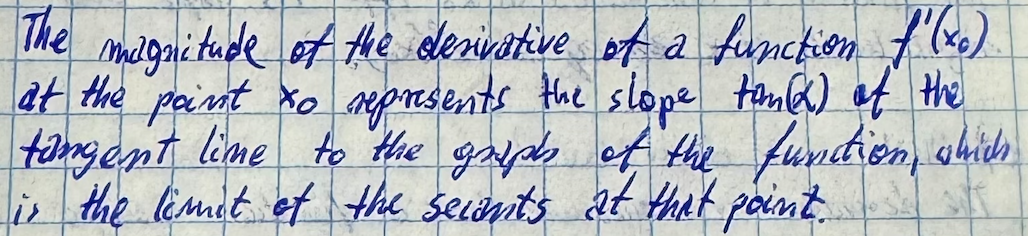 The magnitude of the derivative of a function f'(x₀)
at the point x₀ represents the slope tan(α) of the
tangent line to the graph of the function, which
is the limit of the secants at that point.